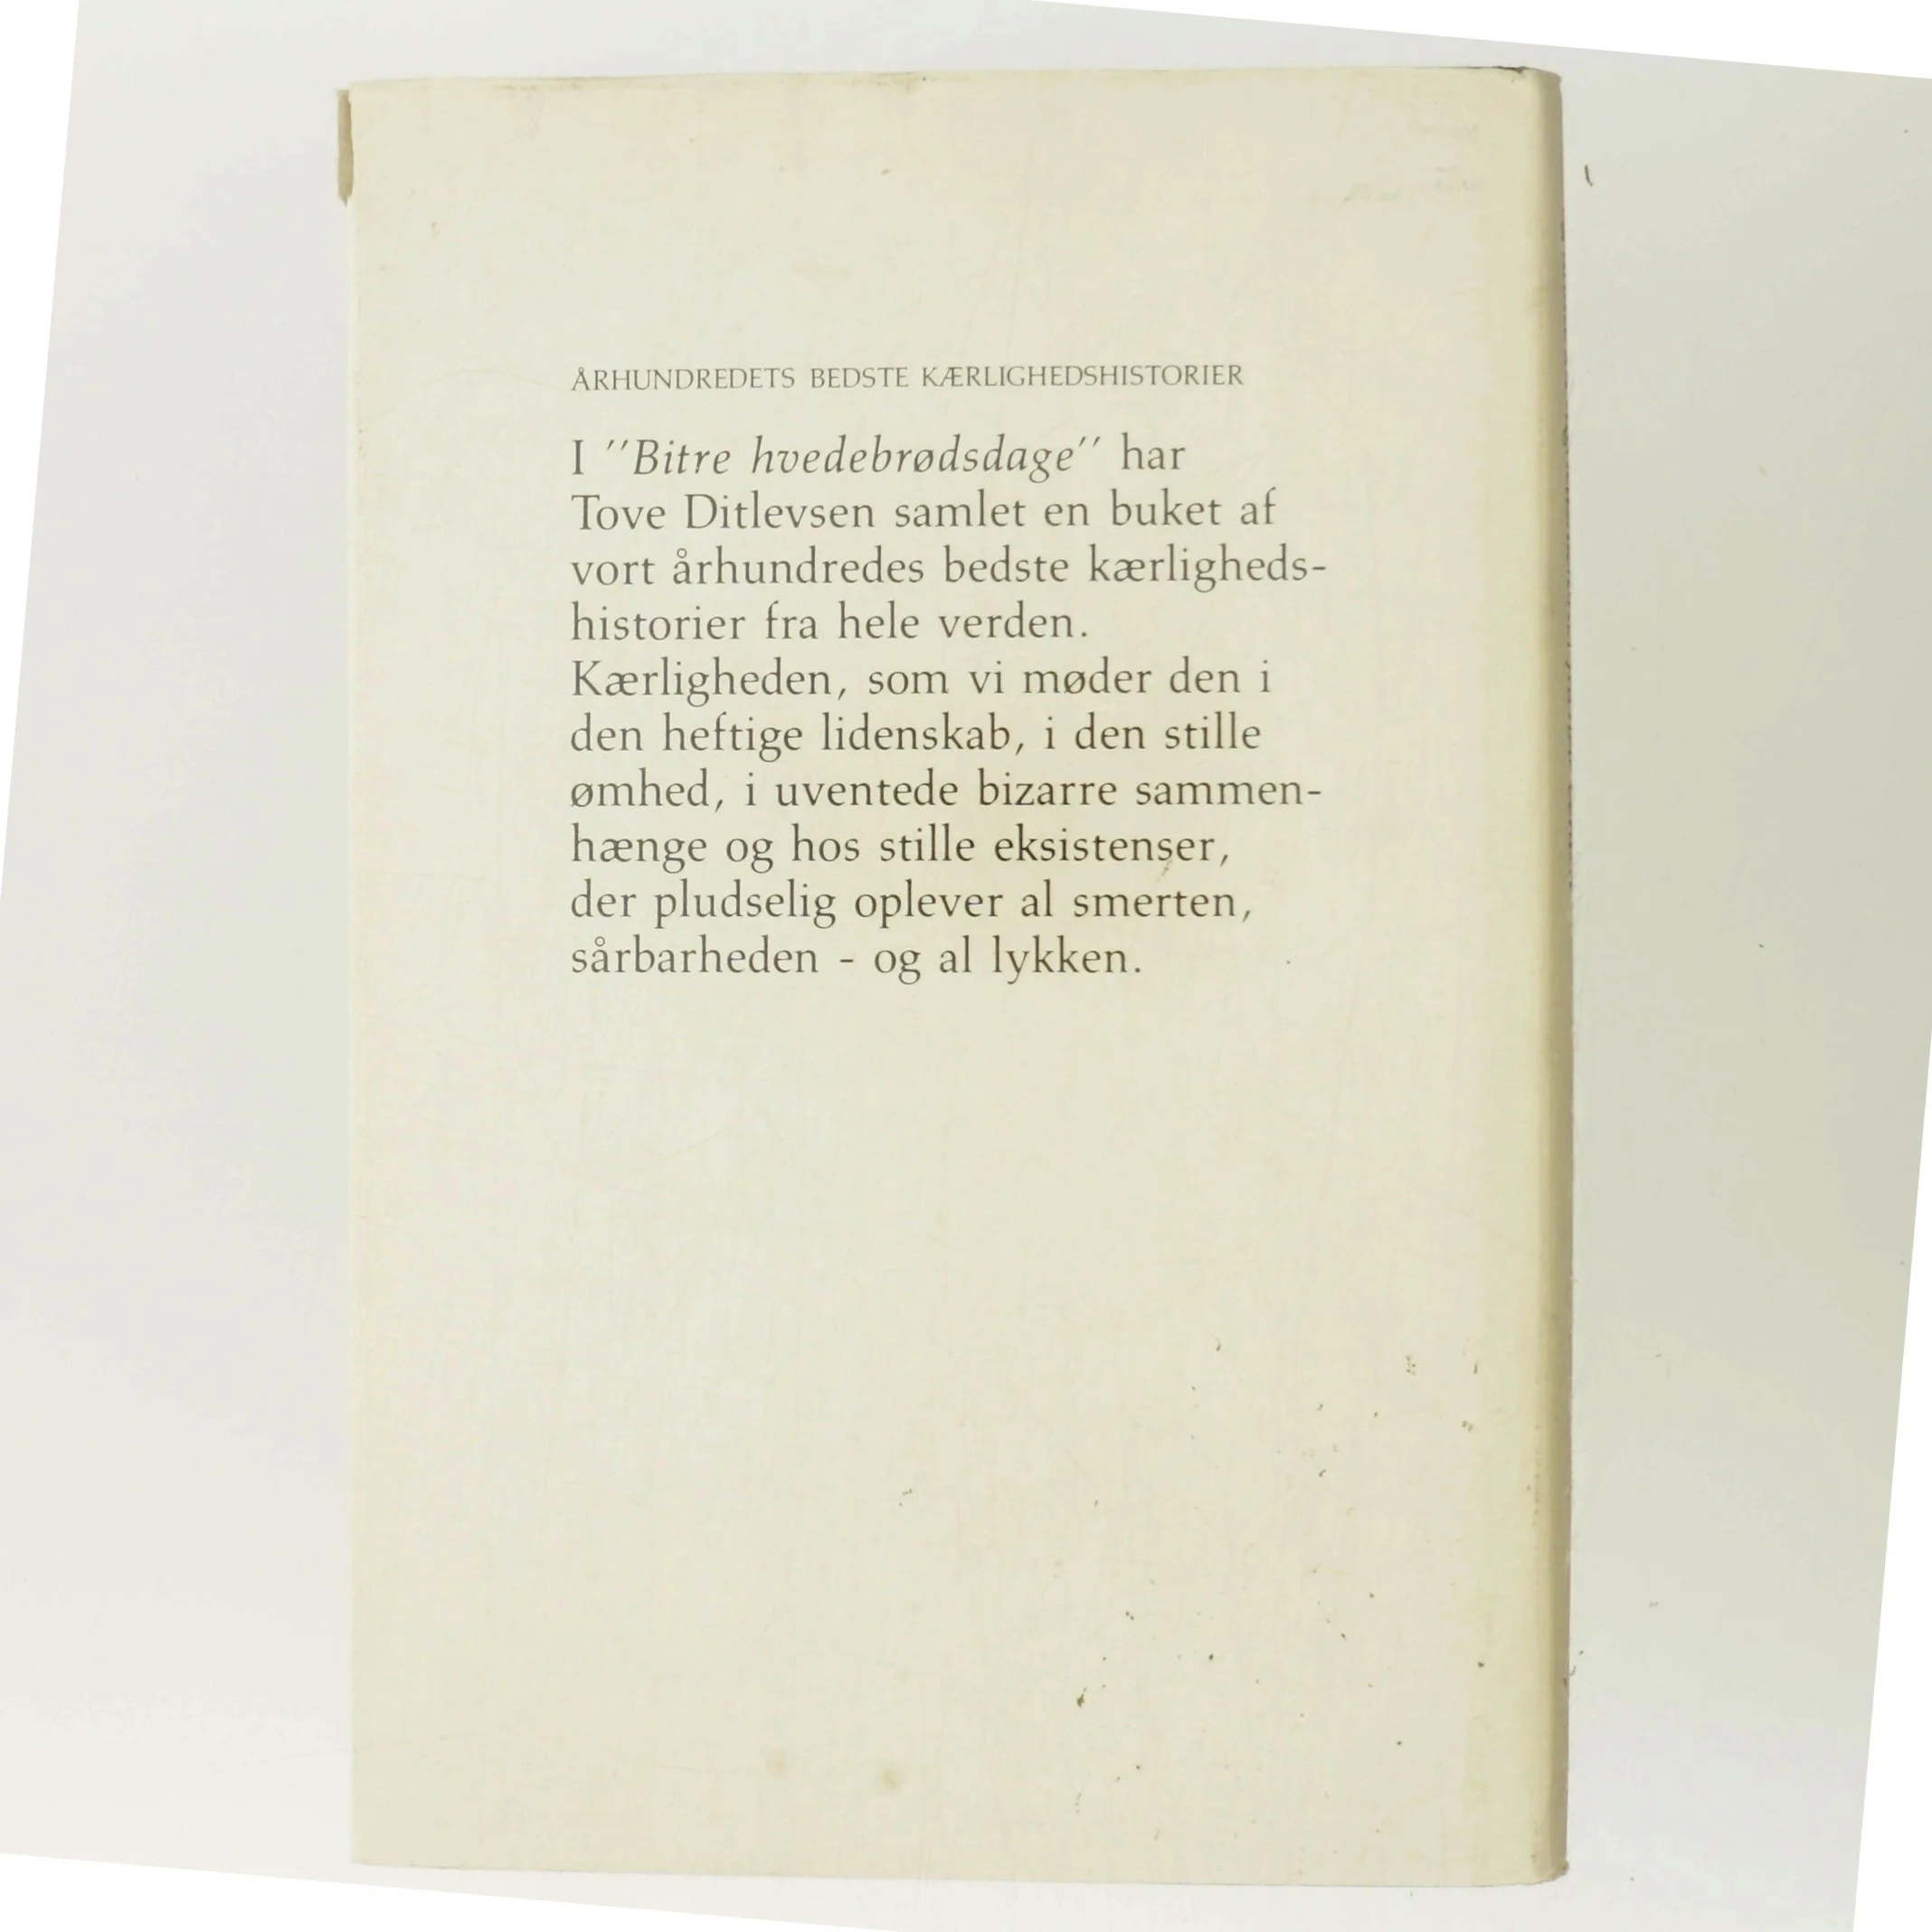 ÅRHUNDREDETS BEDSTE KÆRLIGHEDSHISTORIER
I "Bitre hvedebrødsdage" har
Tove Ditlevsen samlet en buket af
vort århundredes bedste kærligheds-
historier fra hele verden.
Kærligheden, som vi møder den i
den heftige lidenskab, i den stille
ømhed, i uventede bizarre sammen-
hænge og hos stille eksistenser,
der pludselig oplever al smerten,
sårbarheden - og al lykken.